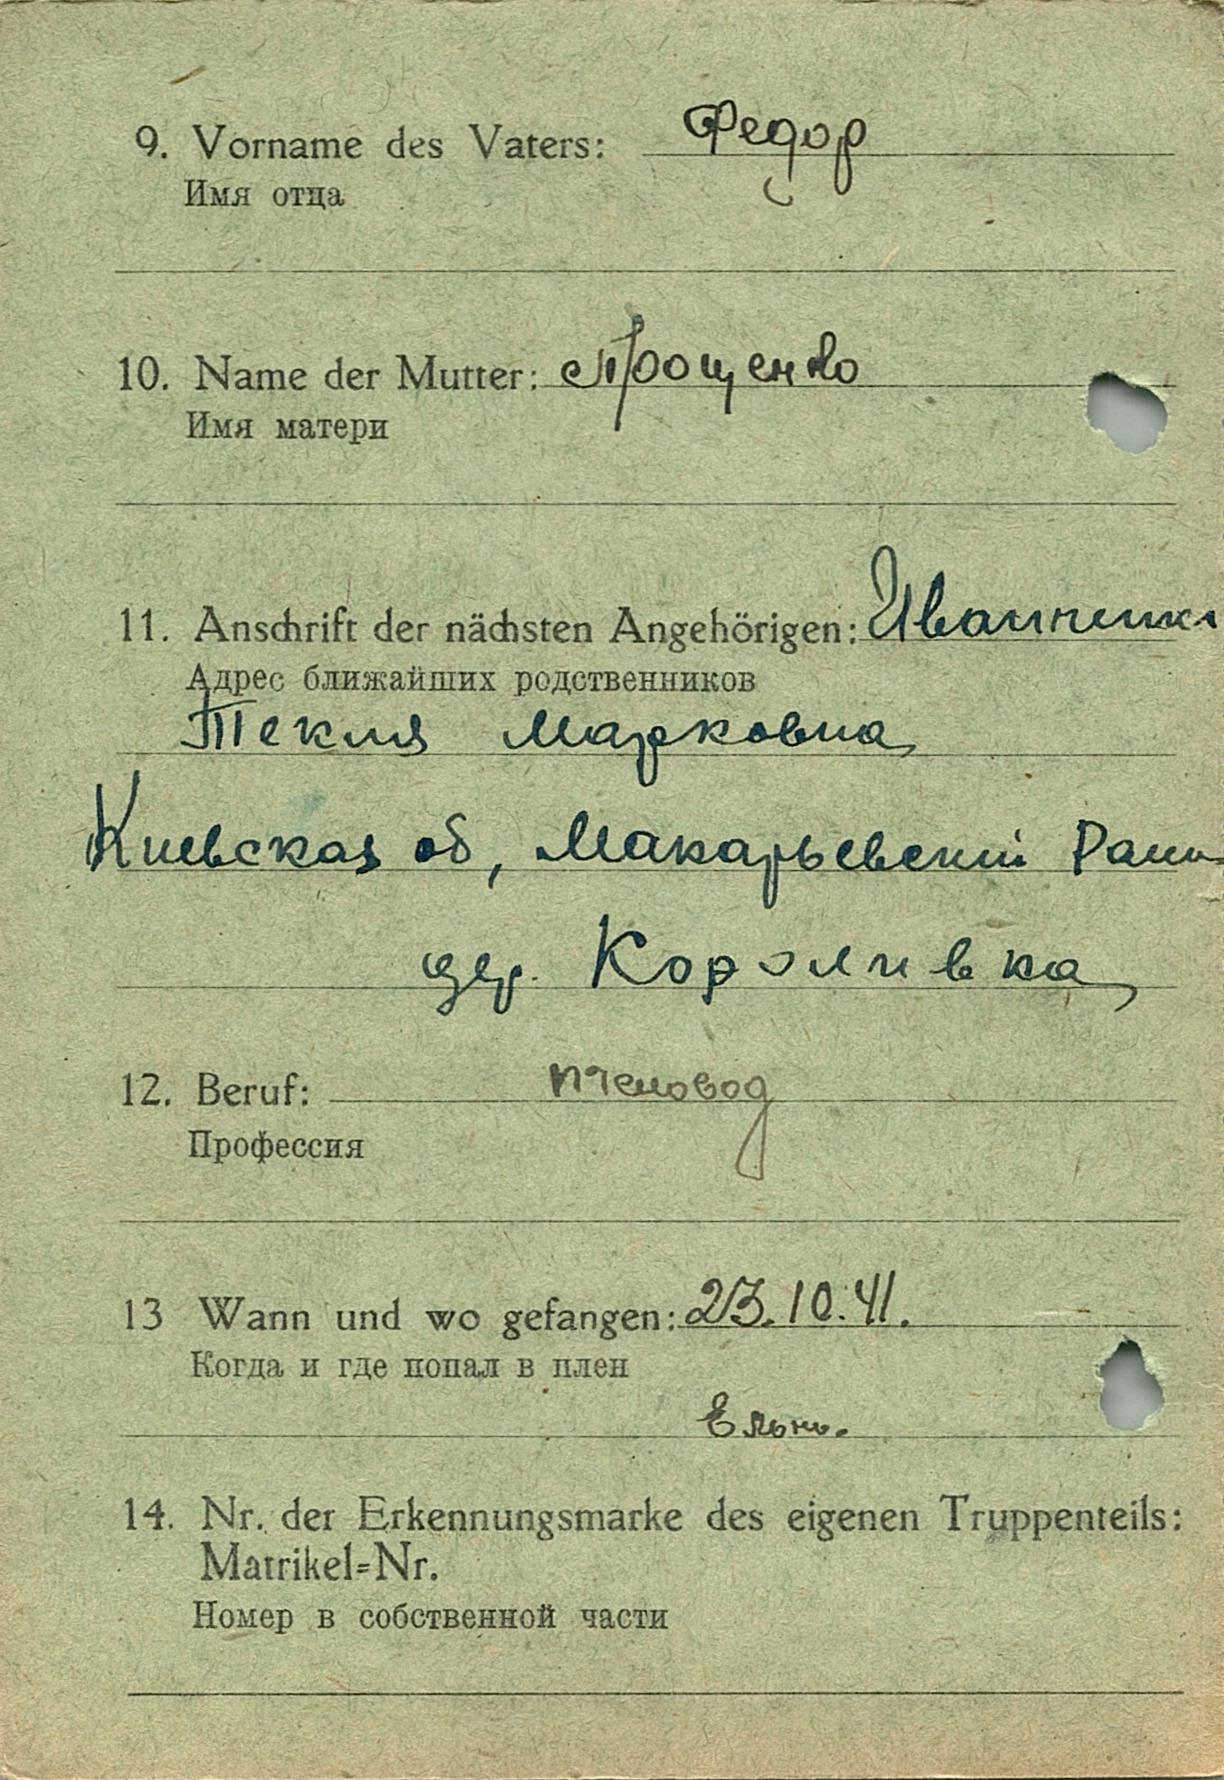 9. Vorname des Vaters: Федор
Имя отца
10. Name der Mutter: Прощенко
Имя матери
11. Anschrift der nächsten Angehörigen:
Адрес ближайших родственников
Текля Марковна
Киевская об, Макарьевский
дер. Короливка
12. Beruf: пчеловод
Профессия
13 Wann und wo gefangen: 23.10.41.
Когда и где попал в плен
Ельн.
14. Nr. der Erkennungsmarke des eigenen Truppenteils:
Matrikel=Nr.
Номер в собственной части